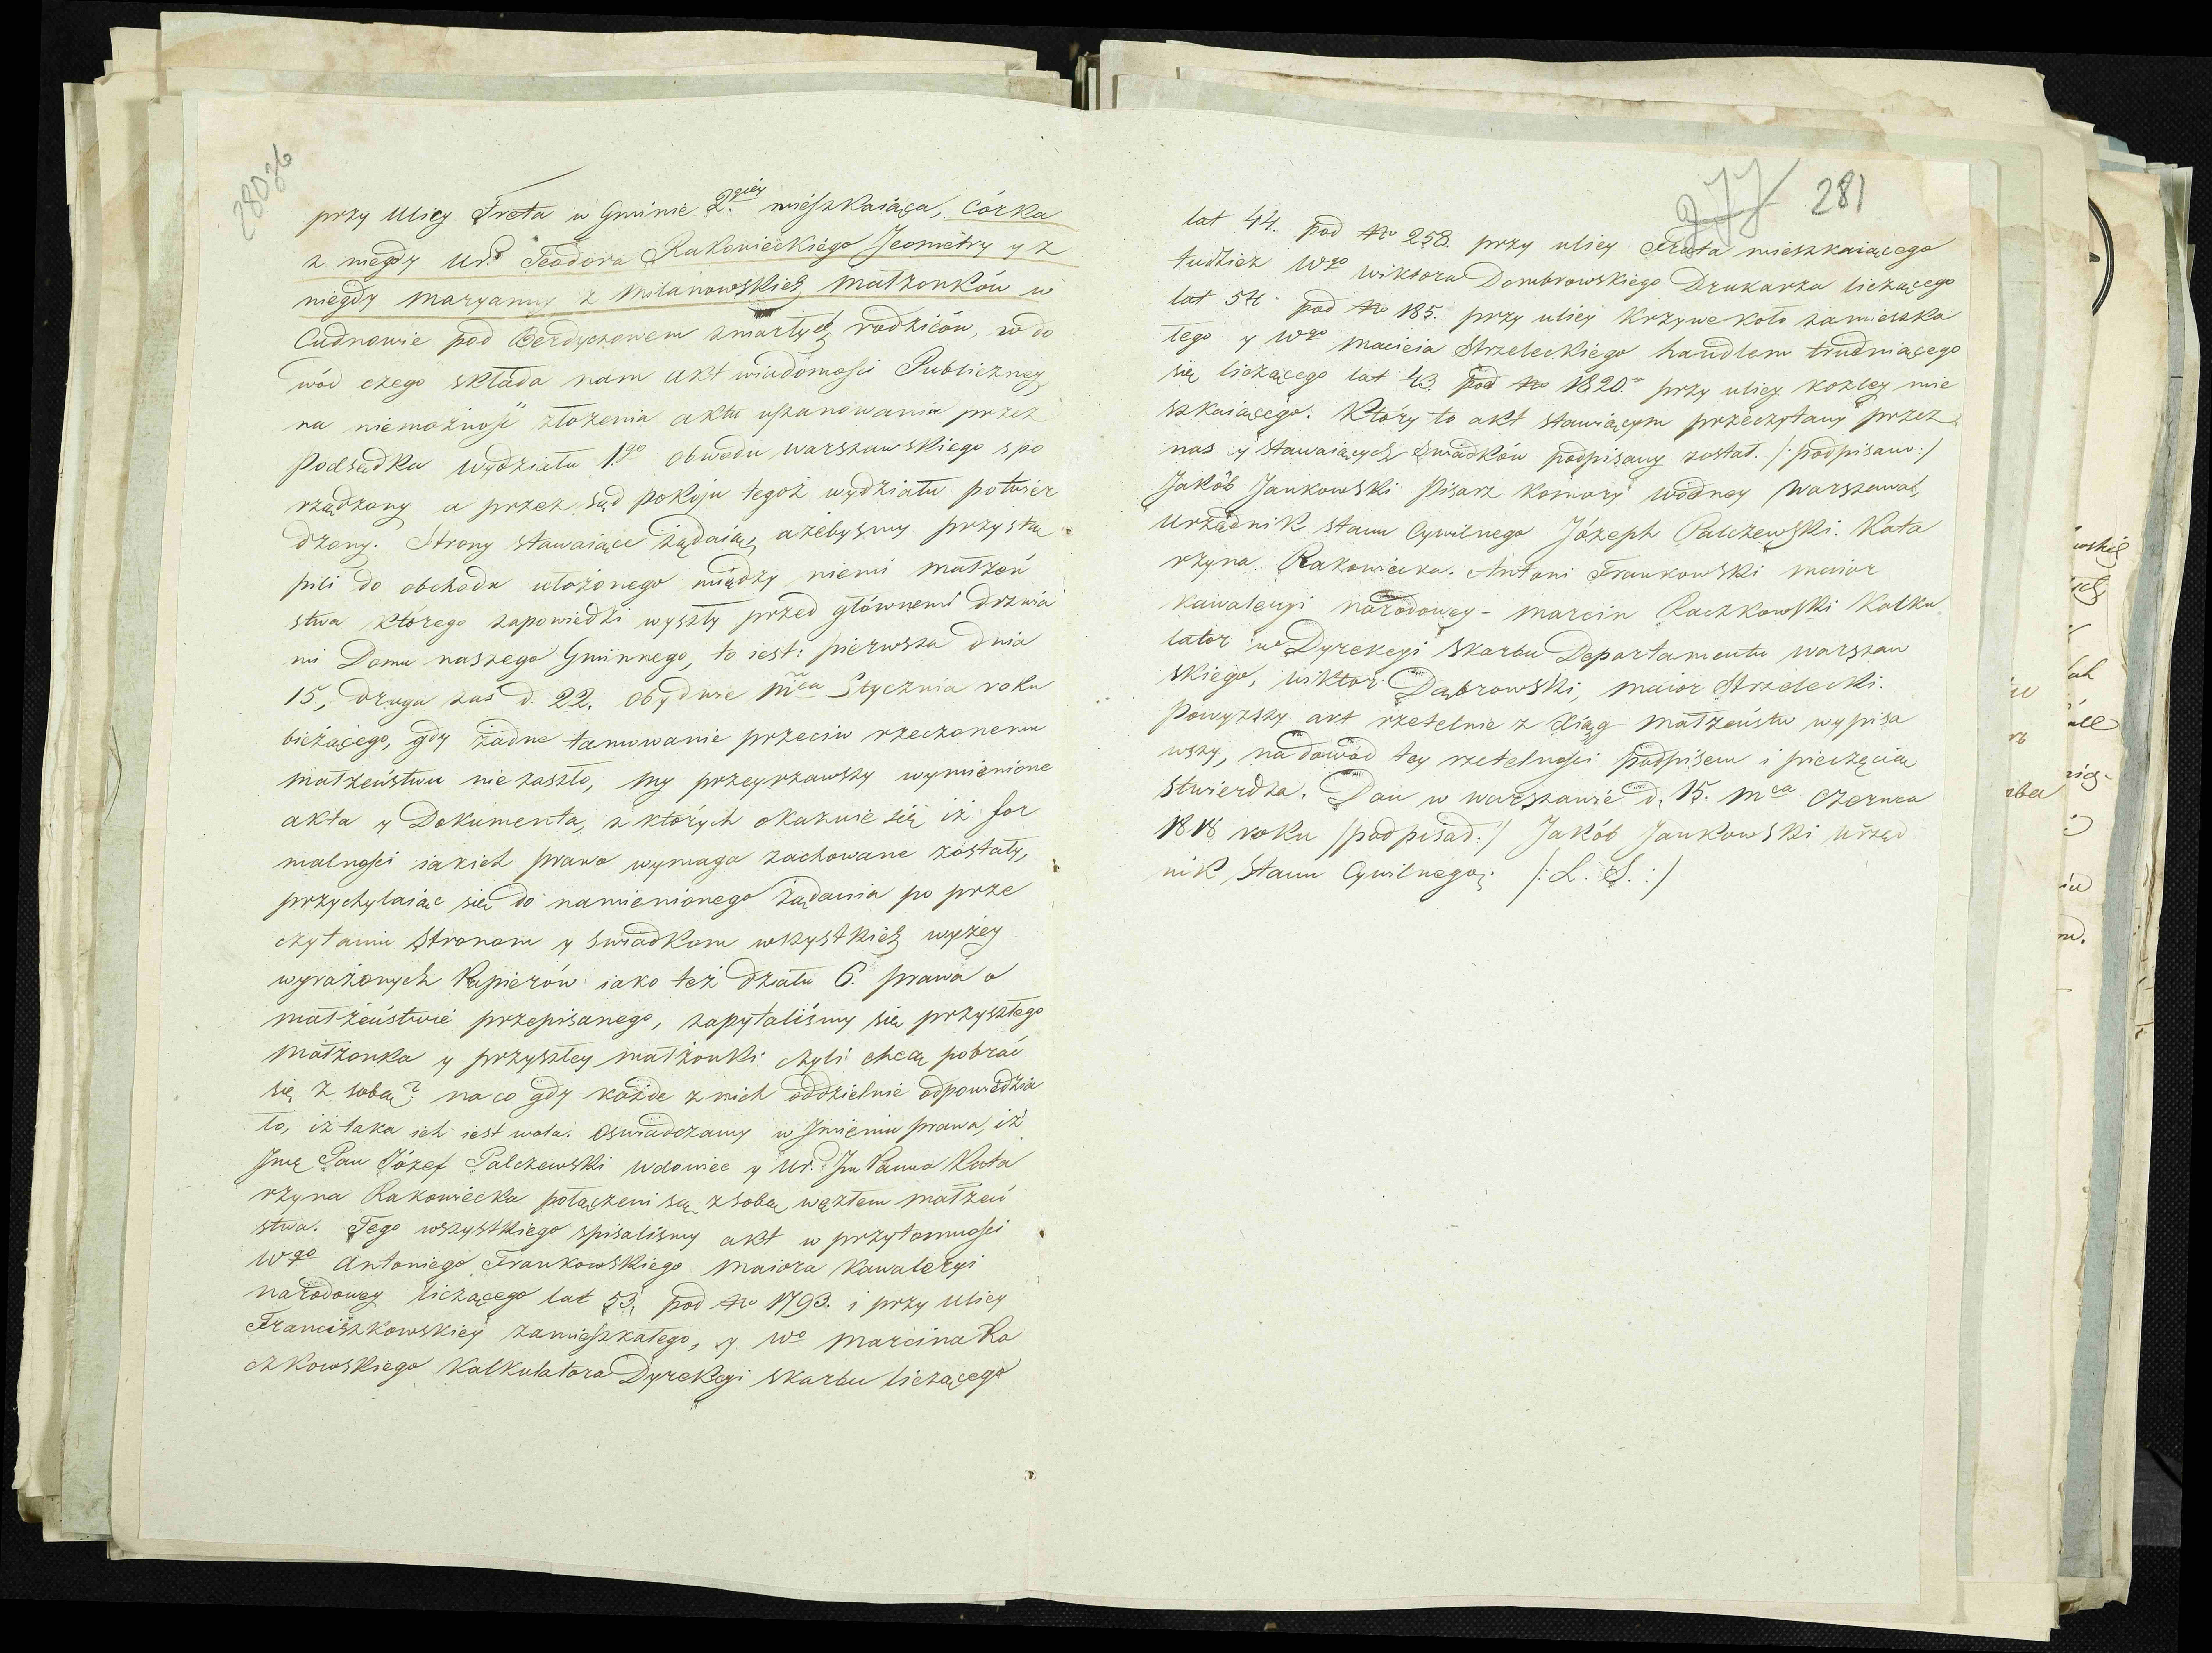 280 76
przy Ulicy Freta w Gminie 2.giey mieszkaiąca, Córka
z niegdy Ur.o Teodora Rakowieckiego Jeometry y z
niegdy Maryanny z Milanowskich Małżonków w
Cudnowie pod Berdyczowem zmarłych rodziców, w do
wód czego składa nam Akt wiadomości Publiczney
na niemożność złożenia aktu uszanowania przez
Podsędka Wydziału 1.go obwodu warszawskiego spo
rządzony a przez Sąd pokoju tegoż wydziału potwier
dzony. Strony stawaiące żądaią, ażebysmy przystą
pili do obchodu ułożonego między niemi Małżeń
stwa którego zapowiedzi wyszły przed głównemi drzwia
mi Domu naszego Gminnego, to iest: pierwsza dnia
15, druga zas d. 22. obydwie mca Stycznia roku
bieżącego, gdy żadne tamowanie przeciw rzeczonemu
Małżeństwu nie zaszło, my przeyrzawszy wymienione
akta y Dokumenta, z których okazuie się iż for
malności iakich prawo wymaga zachowane zostały,
przychylaiąc się do namienionego żądania po prze
czytaniu Stronom y Swiadkom wszystkich wyżey
wyrażonych Papierów iako też działu 6. prawa o
małżeństwie przepisanego, zapytaliśmy się przyszłego
Małżonka y przyszłey małżonki czyli chcą pobrać
się z sobą? na co gdy każde z nich oddzielnie odpowiedzia
ło, iż taka ich iest wola. Oswiadczamy w Jmieniu prawa, iż
Jmć Pan Józef Palczewski wdowiec y Ur. Jm Panna Kata
rzyna Rakowiecka połączeni są z sobą węzłem małżeń
stwa. Tego wszystkiego spisaliśmy akt w przytomności
Wgo Antoniego Frankowskiego Maiora Kawaleryi
narodowey liczącego lat 53, pod No 1793. i przy Ulicy
Franciszkowskiey zamieszkałego, y Wo Marcina Ra
czkowskiego Kalkulatora Dyrekcyi skarbu liczącego
277 281
lat 44. pod No 258. przy ulicy Freta mieszkaiącego
tudzież Wgo Wiktora Dombrowskiego Drukarza liczącego
lat 54. pod No 185. przy ulicy Krzywe koło zamieszka
łego y Wgo Macieia Strzeleckiego handlem trudniącego
się liczącego lat 43 pod No 1820. przy ulicy Kozley mie
szkaiącego. Który to akt stawiącym przeczytany przez
nas y Stawaiących Swiadków podpisany został. /:podpisano:/
Jakób Jankowski Pisarz Komory wodney Warszawsk.
Urzędnik Stanu Cywilnego Józeph Palczewski. Kata
rzyna Rakowiecka. Antoni Frankowski maior
kawaleryi narodowey - Marcin Raczkowski Kalku
lator w Dyrekcyi Skarbu Departamentu warszaw
skiego, Wiktor Dąbrowski, Maior Strzelecki.
Powyższy akt rzetelnie z Xiąg Małżeństw wypisa
wszy, na dowód tey rzetelności podpisem i pieczęcią
stwierdza. Dan w Warszawie d. 15. mca Czerwca
1818 roku /podpisad:/ Jakób Jankowski Urzęd
nik Stanu Cywilnego. /: L. S. :/